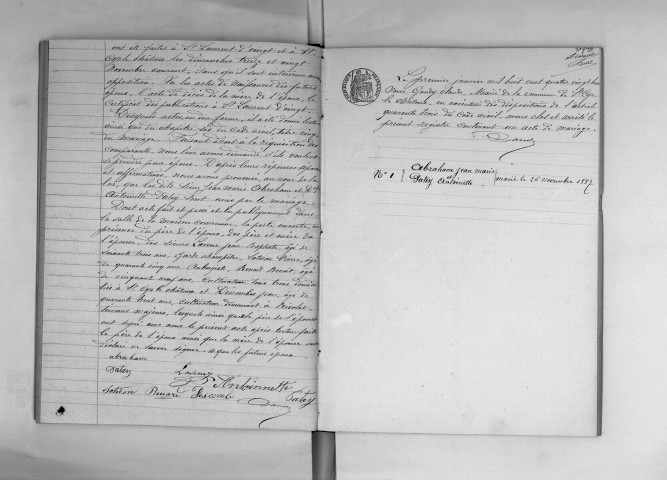 ont été faites à St Laurent d'oingt et à St
Cyr le chatoux les dimanches treize et vingt
Novembre courant, sans qu'il soit intervenu aucune
opposition. Vu les actes de naissances des futurs
époux, l'acte de décès de la mère de l'époux, le
Certificat des publications à St Laurent d'oingt.
Desquels actes, en forme, il a été donné lecture
ainsi que du chapitre six du Code civil, titre cinq
du mariage. Faisant droit à la réquisition des
comparants, Nous leur avons demandé s'ils veulent
se prendre pour époux. D'après leurs réponses séparées
et affirmatives, nous avons prononcé, au nom de la
loi, que les dits sieur Jean Marie Abraham et Dlle
Antoinette Patey sont unis par le mariage.
Dont acte fait et passé et lu publiquement dans
la salle de la maison commune, la porte ouverte, en
présence du père de l'époux, des père et mère de
l'épouse, des sieurs Jean Baptiste, âgé de
soixante trois ans, Garde champêtre, Pierre, âgé
de quarante cinq ans, Aubergiste, Benoit, âgé
de cinquante neuf ans, Cultivateur tous trois domiciliés
à St Cyr le chatoux et Descombes Jean, âgé de
quarante huit ans, cultivateur demeurant à Rivolet,
témoins majeurs, lesquels ainsi que le père de l'épouse
ont signé avec nous le présent acte après lecture faite,
le père de l'époux ainsi que la mère de l'épouse ont
déclaré ne savoir signer, et que les futurs époux.
abraham
Patey Antoinnette
Patey
Descombe
Le premier janvier mil huit cent quatre vingt huit
Nous Claude, Maire de la commune de St Cyr
le Chatoux, en exécution des dispositions de l'article
quarante trois du code civil, avons clos et arrêté le
présent registre contenant un acte de mariage.
N° 1 Abraham jean marie
et
Patey Antoinette
marié le 26 novembre 1887